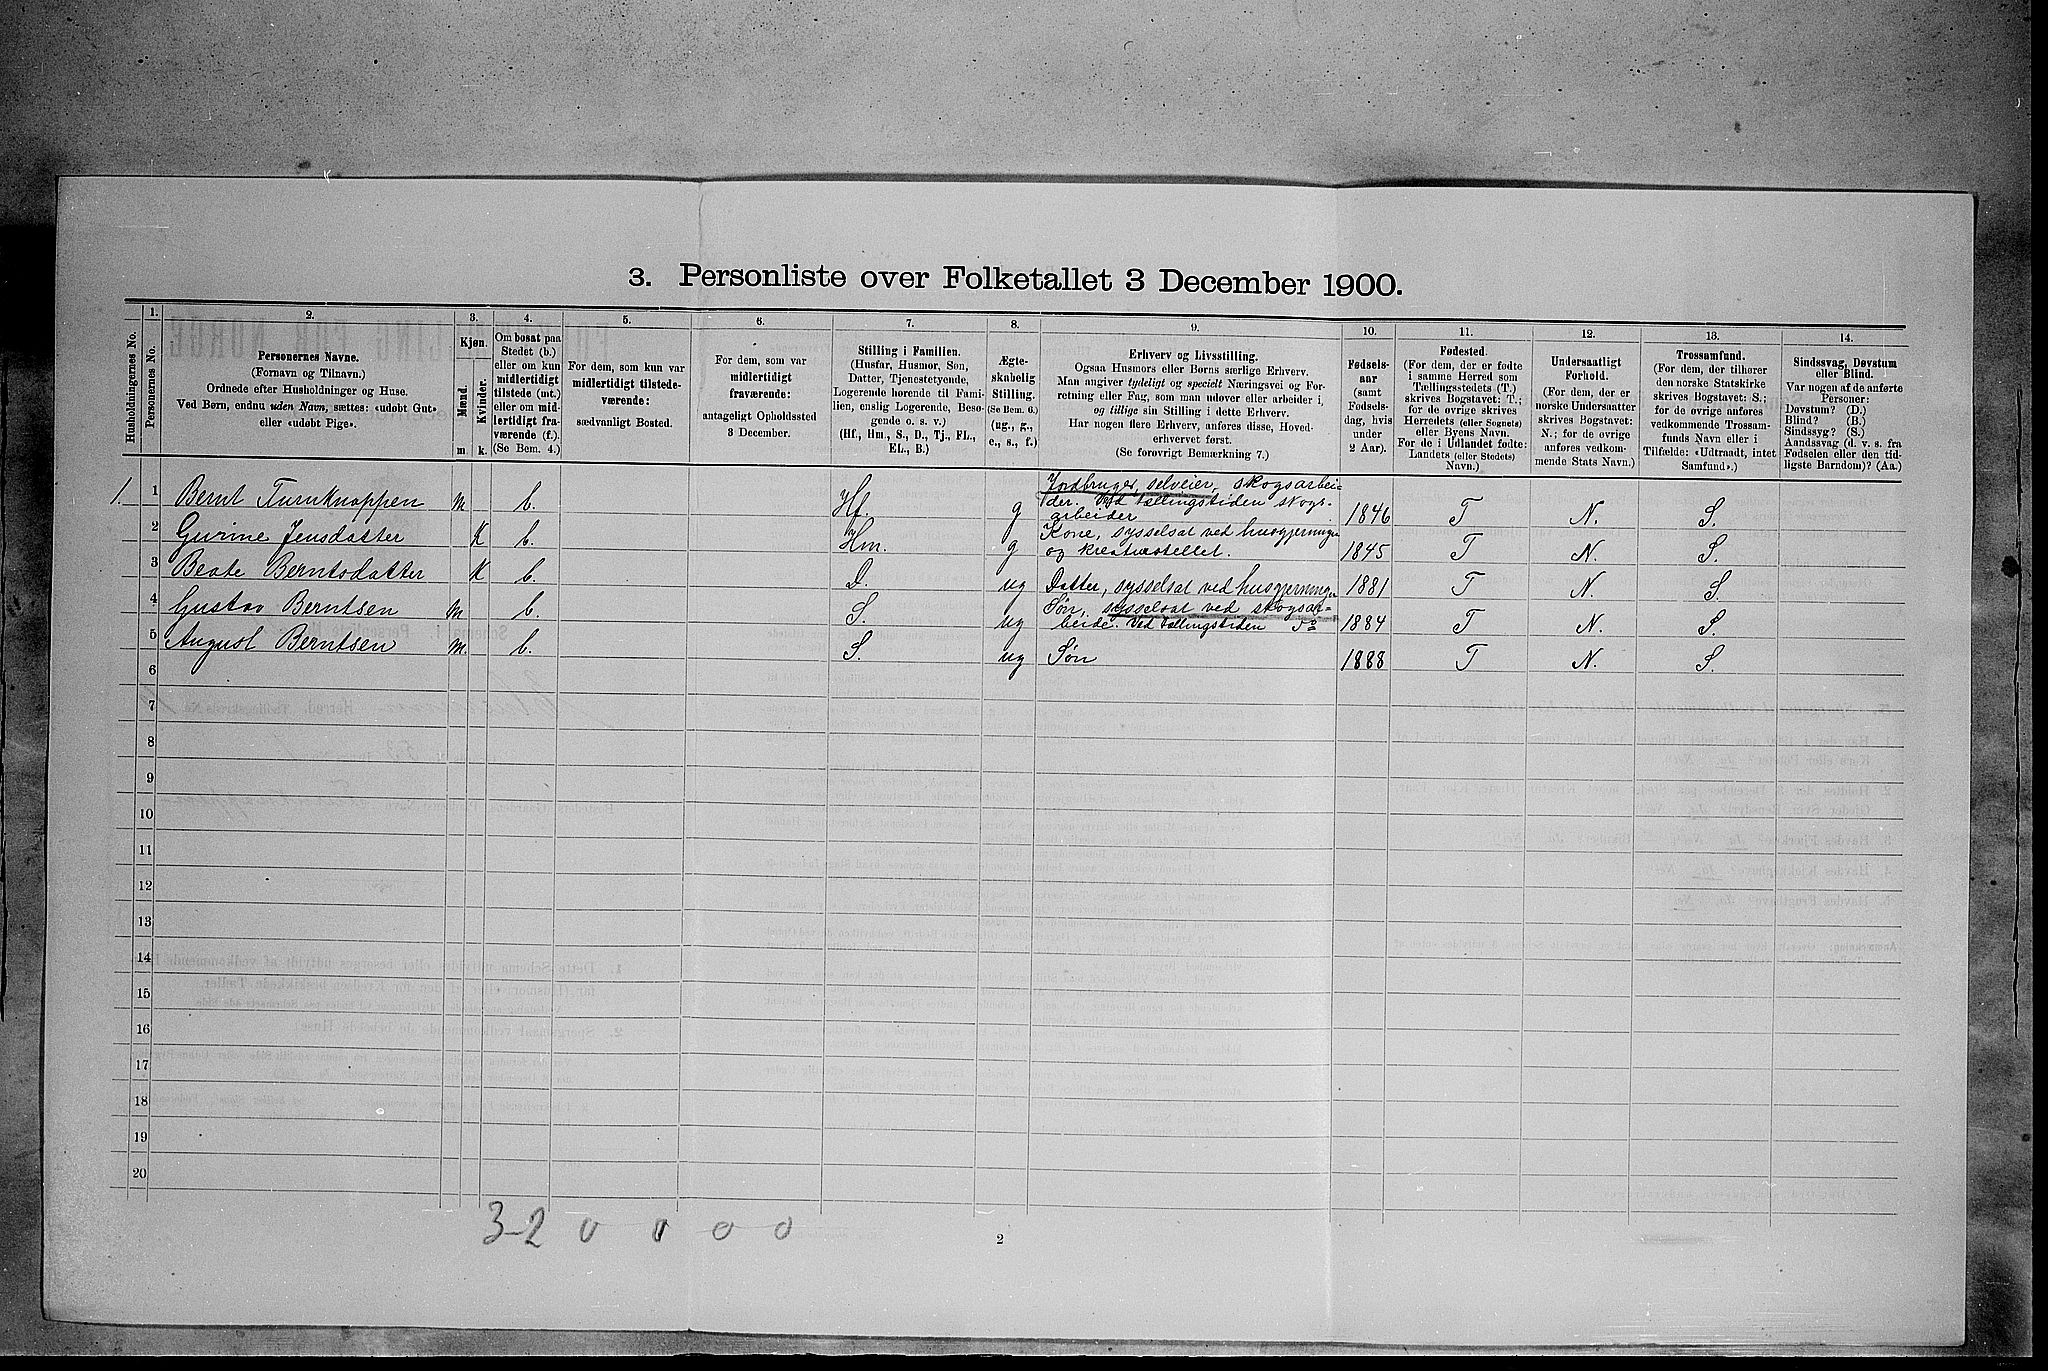 3. Personliste over Folketallet 3 December 1900.
Husholdningernes No.
1.
Personernes No.
2.
Personernes Navne.
(Fornavn og Tilnavn.)
Ordnede efter Husholdninger og Huse.
Ved Børn, endnu uden Navn, sættes: «udøbt Gut»
eller «udøbt Pige».
3.
Kjøn.
Mænd.
Kvinder.
m. k.
4.
Om bosat paa
Stedet (b.)
eller om kun
midlertidigt
tilstede (mt.)
eller om mid-
lertidigt fra-
værende (f.).
(Se Bem. 4.)
5.
For dem, som kun var
midlertidigt tilstede-
værende:
sædvanligt Bosted.
6.
For dem, som var
midlertidigt
fraværende:
antageligt Opholdssted
3 December.
7.
Stilling i Familien.
(Husfar, Husmor, Søn,
Datter, Tjenestetyende,
Logerende hørende til Fami-
lien, enslig Logerende, Besø-
gende o. s. v.)
(Hf., Hm., S., D., Tj., FL.,
EL., B.)
8.
Ægte-
skabelig
Stilling.
(Se Bem. 6.)
(ug., g.,
e., s., f.)
9.
Erhverv og Livsstilling.
Ogsaa Husmors eller Børns særlige Erhverv.
Man angiver tydeligt og specielt Næringsvei og For-
retning eller Fag, som man udøver eller arbeider i,
og tillige sin Stilling i dette Erhverv.
Har nogen flere Erhverv, anføres disse, Hoved-
erhvervet først.
(Se forøvrigt Bemærkning 7.)
10.
Fødsels-
aar
(samt
Fødsels-
dag, hvis
under
2 Aar).
11.
Fødested.
(For dem, der er fødte
i samme Herred som
Tællingsstedets (T.)
skrives Bogstavet: T.;
for de øvrige skrives
Herredets (eller Sognets)
eller Byens Navn.
For de i Udlandet fødte:
Landets (eller Stedets)
Navn.)
12.
Undersaatligt
Forhold.
(For dem, der er
norske Undersaatter
skrives Bogstavet:
N.; for de øvrige
anføres vedkom-
mende Stats Navn.)
13.
Trossamfund.
(For dem, der tilhører
den norske Statskirke
skrives Bogstavet: S.;
for de øvrige anføres
vedkommende Trossam-
funds Navn eller i
Tilfælde: «Udtraadt, intet
Samfund».)
14.
Sindssvag, Døvstum
eller Blind.
Var nogen af de anførte
Personer:
Døvstum? (D.)
Blind? (B.)
Sindssyg? (S.)
Aandssvag (d. v. s. fra
Fødselen eller den tid-
ligste Barndom)? (Aa.)
1. 1 Bernt Turnknappen m b. Hf. g Jordbruger, selveier, skogsarbei-
der. Ved tællingstiden skogs-
arbeider 1846 T N. S.
2 Gurine Jensdatter K b. Hm. g Kone, sysselsat ved husgjerninger
og kreaturstellet. 1845 T N. S.
3 Beate Berntsdatter K b. D. ug Datter, sysselsat ved husgjerninger 1881 T N. S.
4 Gustav Berntsen m b. S. ug Søn, sysselsat ved skogsar-
beide. Ved tællingstiden 1884 T N. S.
5 August Berntsen m. b. S. ug Søn 1888 T N. S.
6
7
8
9
10
11
12
13
14
15
16
17
18
19
20
3-2 0 1 0 0
2